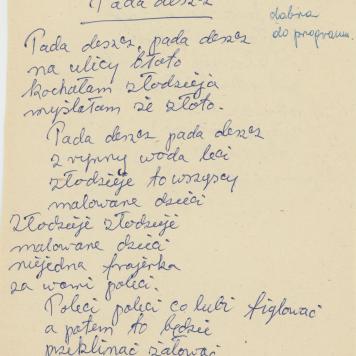 Pada deszcz
dobra
do programu.
Pada deszcz, pada deszcz
na ulicy błoto
kochałam złodzieja
myślałam że złoto.
Pada deszcz pada deszcz
z rynny woda leci
złodzieje to wszyscy
malowane dzieci
złodzieje złodzieje
malowane dzieci
niejedna frajerka
za wami poleci.
Poleci poleci co lubi figlować
a potem to będzie
przeklinać żałować